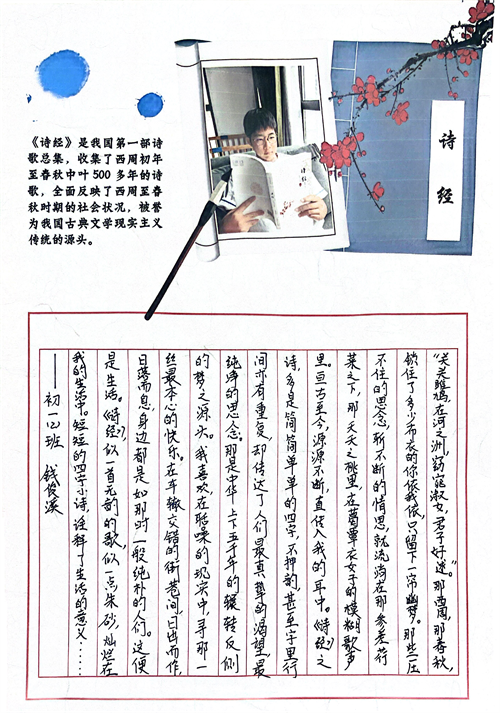 《诗经》是我国第一部诗
歌总集，收集了西周初年
至春秋中叶500多年的诗
歌，全面反映了西周至春
秋时期的社会状况，被誉
为我国古典文学现实主义
传统的源头。
诗经
“关关雎鸠，在河之洲，窈窕淑女，君子好逑。”那西周，那春秋，
锁住了多少布衣的你依我侬，只留下一帘幽梦。那些压
不住的思念，斩不断的情思，就流淌在那参差荇
菜之下，那夭夭之桃里，在葛覃衣女子的模糊歌声
里。亘古至今，源源不断，直传入我的耳中。《诗经》之
诗，多是简简单单的四字，不押韵，甚至字里行
间亦有重复，却传达了人们最真挚的渴望，最
纯净的思念。那是中华上下五千年的辗转反侧
的梦之源头。我喜欢在聒噪的现实中，寻那一
丝最本心的快乐。在车辙交错的街巷间，日出而作，
日落而息，身边都是如那时一般纯朴的人们。这便
是生活。《诗经》，似一首无韵的歌，似一点朱砂，灿烂在
我的生活中。短短的四字小诗，诠释了生活的意义……
——初一(2)班 钱俊溪